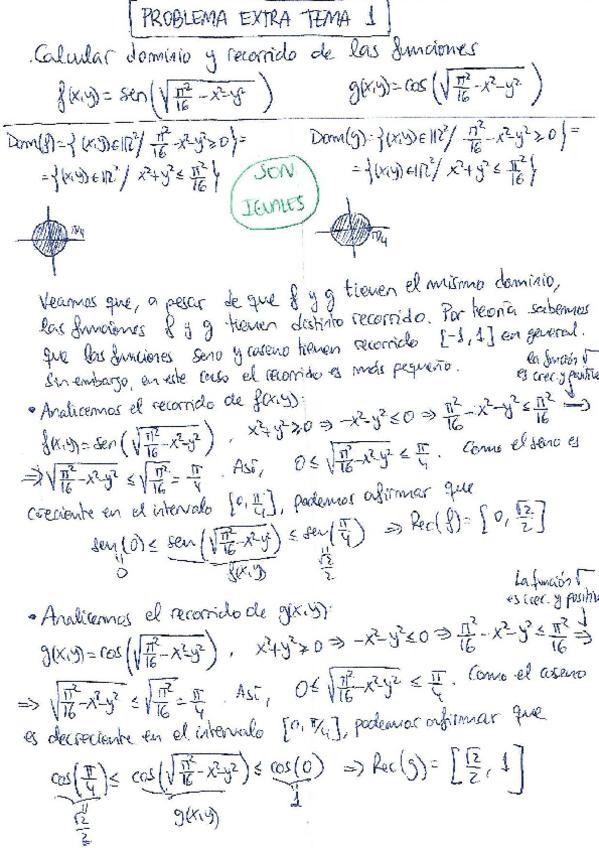 PROBLEMA EXTRA TEMA 1
. Calcular dominio y recorrido de las funciones
f(x,y)=sen(√(π²/16 - x²-y²)) g(x,y)=cos(√(π²/16 - x²-y²))
Dom(f)={(x,y)∈ℝ²/ π²/16 - x²-y² ≥ 0}=
={(x,y)∈ℝ²/ x²+y² ≤ π²/16}
π/4
SON
IGUALES
Dom(g)={(x,y)∈ℝ²/ π²/16 - x²-y² ≥ 0}=
={(x,y)∈ℝ²/ x²+y² ≤ π²/16}
π/4
Veamos que, a pesar de que f y g tienen el mismo dominio,
las funciones f y g tienen distinto recorrido. Por teoría sabemos
que las funciones seno y coseno tienen recorrido [-1,1] en general.
Sin embargo, en este caso el recorrido es más pequeño.
la función √
es crec. y positiva
• Analicemos el recorrido de f(x,y):
f(x,y)=sen(√(π²/16 - x²-y²)), x²+y² ≥ 0 ⇒ -x²-y² ≤ 0 ⇒ π²/16 - x²-y² ≤ π²/16 ⇒
⇒ √(π²/16 - x²-y²) ≤ √(π²/16) = π/4. Así, 0 ≤ √(π²/16 - x²-y²) ≤ π/4. Como el seno es
creciente en el intervalo [0, π/4], podemos afirmar que
sen(0) ≤ sen(√(π²/16 - x²-y²)) ≤ sen(π/4) ⇒ Rec(f) = [0, √2/2]
0 f(x,y) √2/2
La función √
es crec. y positiva
• Analicemos el recorrido de g(x,y):
g(x,y)=cos(√(π²/16 - x²-y²)), x²+y² ≥ 0 ⇒ -x²-y² ≤ 0 ⇒ π²/16 - x²-y² ≤ π²/16 ⇒
⇒ √(π²/16 - x²-y²) ≤ √(π²/16) = π/4. Así, 0 ≤ √(π²/16 - x²-y²) ≤ π/4. Como el coseno
es decreciente en el intervalo [0, π/4], podemos afirmar que
cos(π/4) ≤ cos(√(π²/16 - x²-y²)) ≤ cos(0) ⇒ Rec(g) = [√2/2, 1]
√2/2 g(x,y) 1